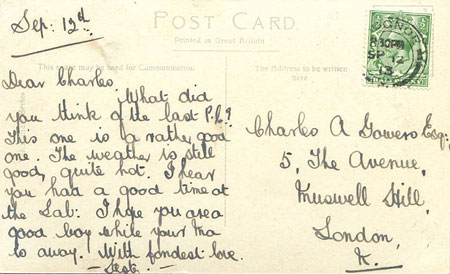 Sep: 12th
POST CARD.
Printed in Great Britain
This space may be used for Communication.
The Address to be written here
LONDON
SP 12
13
Dear Charles,
What did
you think of the last P.C?
This one is a rather good
one. The weather is still
good, quite hot. I hear
you had a good time at
the Lab: I hope you are a
good boy while your Ma
is away. With fondest love.
Charles A Gowers Esq:
5, The Avenue,
Muswell Hill,
London,
N.